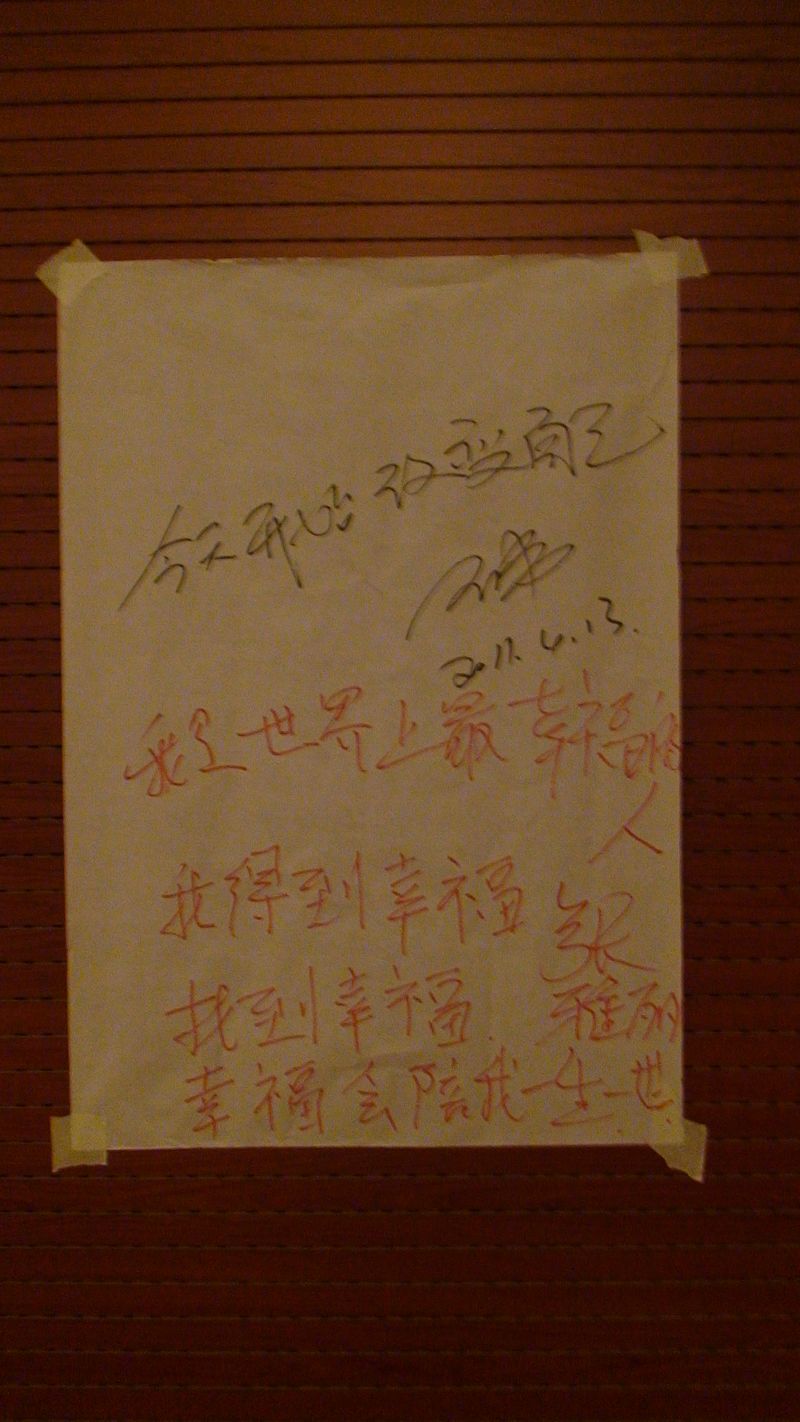 今天开始改变自己
2011.4.13.
我是世界上最幸福的
人
我得到幸福
张
找到幸福. 雅丽
幸福会陪我一生一世.